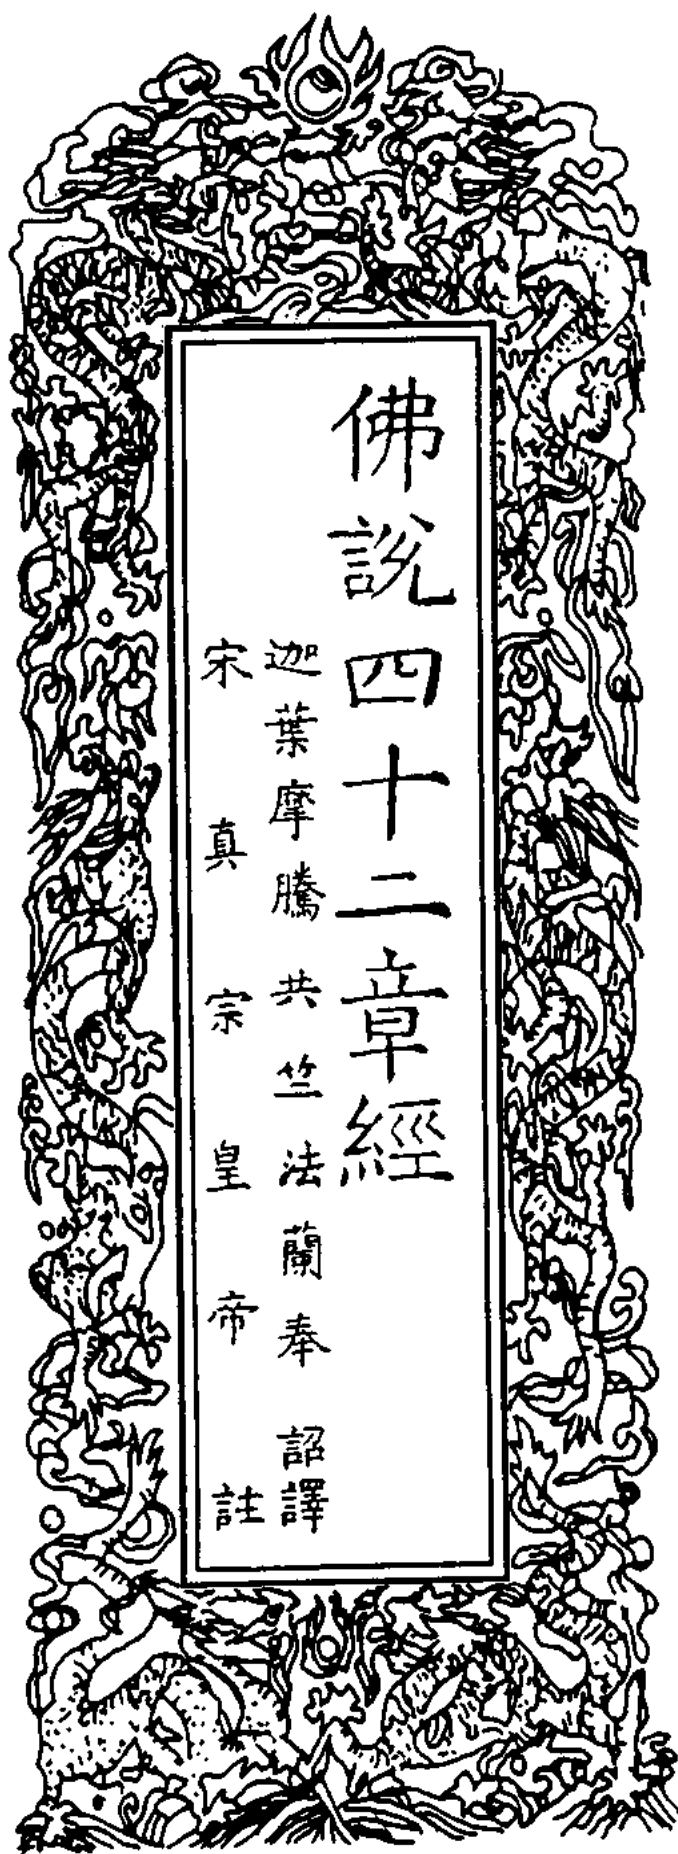 佛說四十二章經
迦葉摩騰共竺法蘭奉 詔譯
宋真宗皇帝註